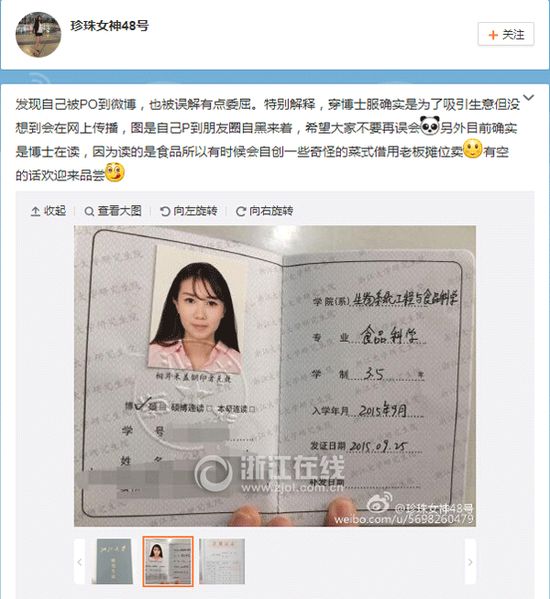 珍珠女神48号
+ 关注
发现自己被PO到微博，也被误解有点委屈。特别解释，穿博士服确实是为了吸引生意但没
想到会在网上传播，图是自己P到朋友圈自黑来着，希望大家不要再误会 另外目前确实
是博士在读，因为读的是食品所以有时候会自创一些奇怪的菜式借用老板摊位卖 有空
的话欢迎来品尝
收起 查看大图 向左旋转 向右旋转
学院(系) 生物系统工程与食品科学
专业 食品科学
相片未盖钢印者无效
学制 3.5 年
博 硕 硕博连读 本硕连读
入学年月 2015年9月
学号
发证日期 2015.09.25
姓名
补发日期
浙江在线
www.zjol.com.cn
@珍珠女神48号
weibo.com/u/5698260479